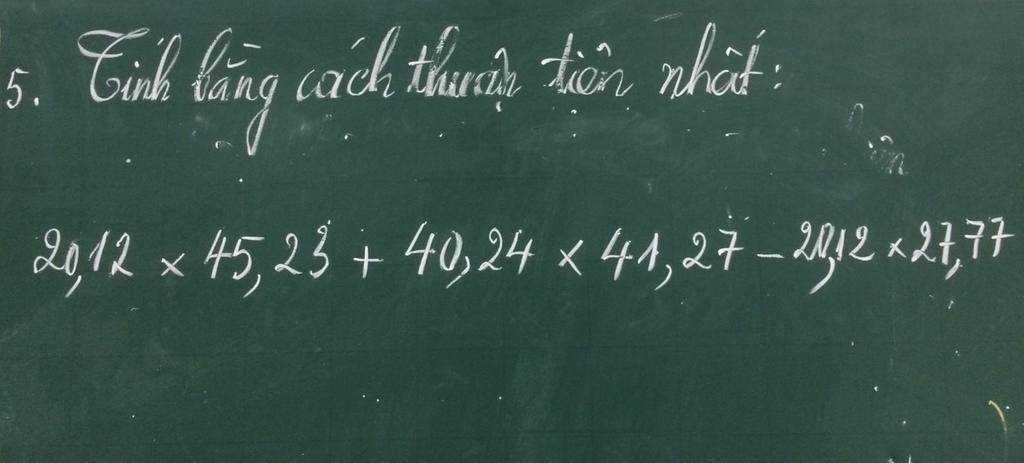 5. Tính bằng cách thuận tiện nhất:
20,12 × 45,23 + 40,24 × 41,27 - 20,12 × 27,77